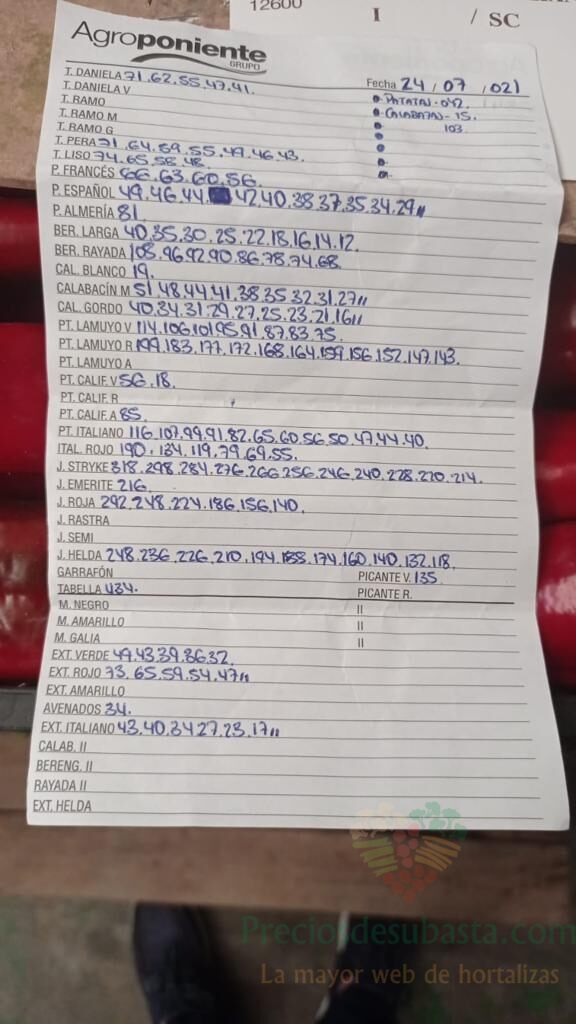 12600
I / SC
Agroponiente
GRUPO
Fecha 24 / 07 / 021
T. DANIELA 71.62.55.47.41.
T. DANIELA V
• PATATAS-042.
T. RAMO
• CALABAZAS-15.
T. RAMO M
• 103
T. RAMO G
T. PERA 71.64.59.55.49.46.43.
T. LISO 74.65.58.48.
P. FRANCÉS 66.63.60.56.
P. ESPAÑOL 49.46.44. 42.40.38.37.35.34.29"
P. ALMERÍA 81.
BER. LARGA 40.35.30.25.22.18.16.14.12.
BER. RAYADA 108.96.92.90.86.78.74.68.
CAL. BLANCO 19.
CALABACÍN M 51.48.44.41.38.35.32.31.27"
CAL. GORDO 40.34.31.29.27.25.23.21.16"
PT. LAMUYO V 114.106.101.95.91.87.83.75.
PT. LAMUYO R 199.183.177.172.168.164.159.156.152.147.143.
PT. LAMUYO A
PT. CALIF. V 56.18.
PT. CALIF. R
PT. CALIF. A 85.
PT. ITALIANO 116.107.99.91.82.65.60.56.50.47.44.40.
ITAL. ROJO 190.134.119.79.69.55.
J. STRYKE 318.298.284.276.266.256.246.240.228.220.214.
J. EMERITE 216.
J. ROJA 292.248.224.186.156.140.
J. RASTRA
J. SEMI
J. HELDA 248.236.226.210.194.188.174.160.140.132.118.
GARRAFÓN PICANTE V. 135
TABELLA 434. PICANTE R.
M. NEGRO II
M. AMARILLO II
M. GALIA II
EXT. VERDE 49.43.39.36.32.
EXT. ROJO 73.65.59.54.47"
EXT. AMARILLO
AVENADOS 34.
EXT. ITALIANO 43.40.34.27.23.17"
CALAB. II
BERENG. II
RAYADA II
EXT. HELDA
Preciosdesubasta.com
La mayor web de hortalizas